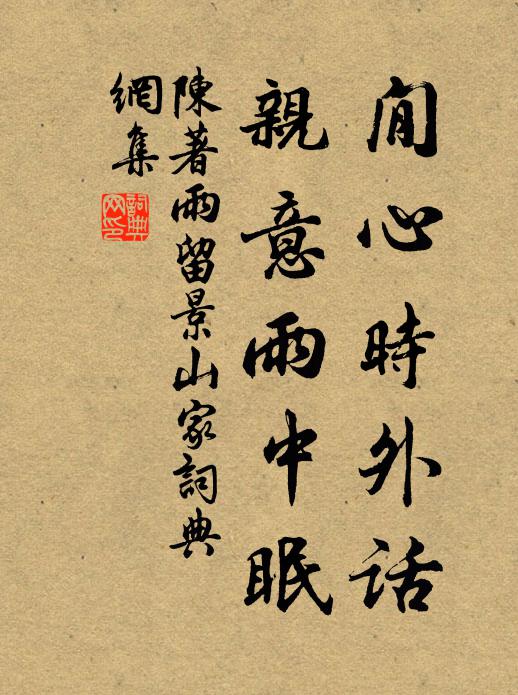 閒心時外話
親意雨中眠
陳著雨留景山家詞典
網集
詞典
网印